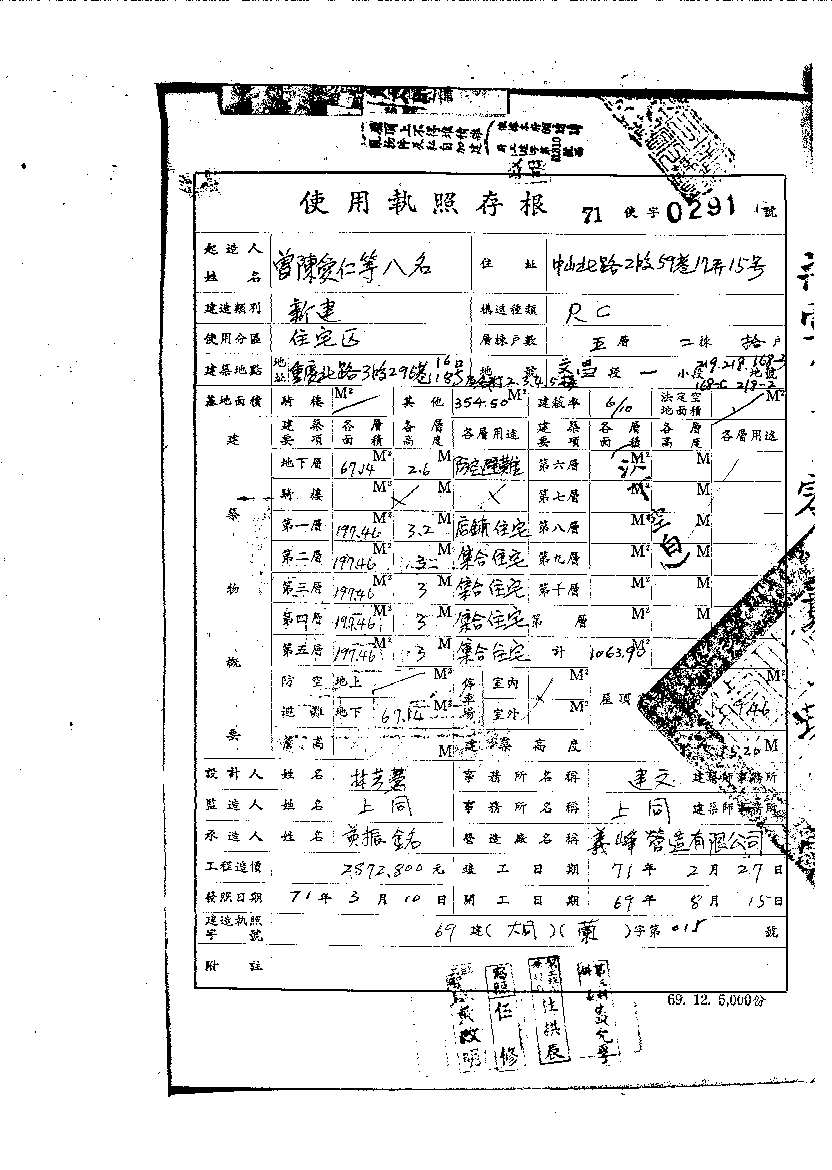 使用執照存根 71 使字0291號
起造人姓名 曾陳愛仁等八名 住址 中山北路2段59巷17弄15号
建造類別 新建 構造種類 RC
使用分區 住宅区 層棟戶數 五層 二棟 拾戶
建築地點 地址 重慶北路3段296巷16 118号 地號 文昌段一小段 219.218.168-3 168-5 218-2 地號
基地面積 騎樓 M² 其他 354.50 M² 建蔽率 6/10 法定空地面積 M²
建築要項 各層面積 各層高度 各層用途 建築要項 各層面積 各層高度 各層用途
建築物概要
地下層 67.14 M² 2.6 M 防空避難 第六層 M² M
騎樓 M² M 第七層 M² M
第一層 197.46 M² 3.2 M 店鋪住宅 第八層 M² M
第二層 197.46 M² 3 M 集合住宅 第九層 M² M
第三層 197.46 M² 3 M 集合住宅 第十層 M² M
第四層 197.46 M² 3 M 集合住宅 第 層 M² M
第五層 197.46 M² 3 M 集合住宅 計 1063.90 M²
(空白)
防空避難 地上 M² 停車場 室內 M² 屋頂 M²
地下 67.14 M² 室外 M² 19.46
簷高 M 建築高度 15.26 M
設計人 姓名 事務所名稱 建文 建築師事務所
監造人 姓名 上同 事務所名稱 上同 建築師事務所
承造人 姓名 黃振銘 營造廠名稱 義峰營造有限公司
工程造價 2872.800元 竣工日期 71年2月27日
發照日期 71年3月10日 開工日期 69年8月15日
建造執照字號 69建(大同)(蘭)字第018號
附註
69. 12. 5,000份